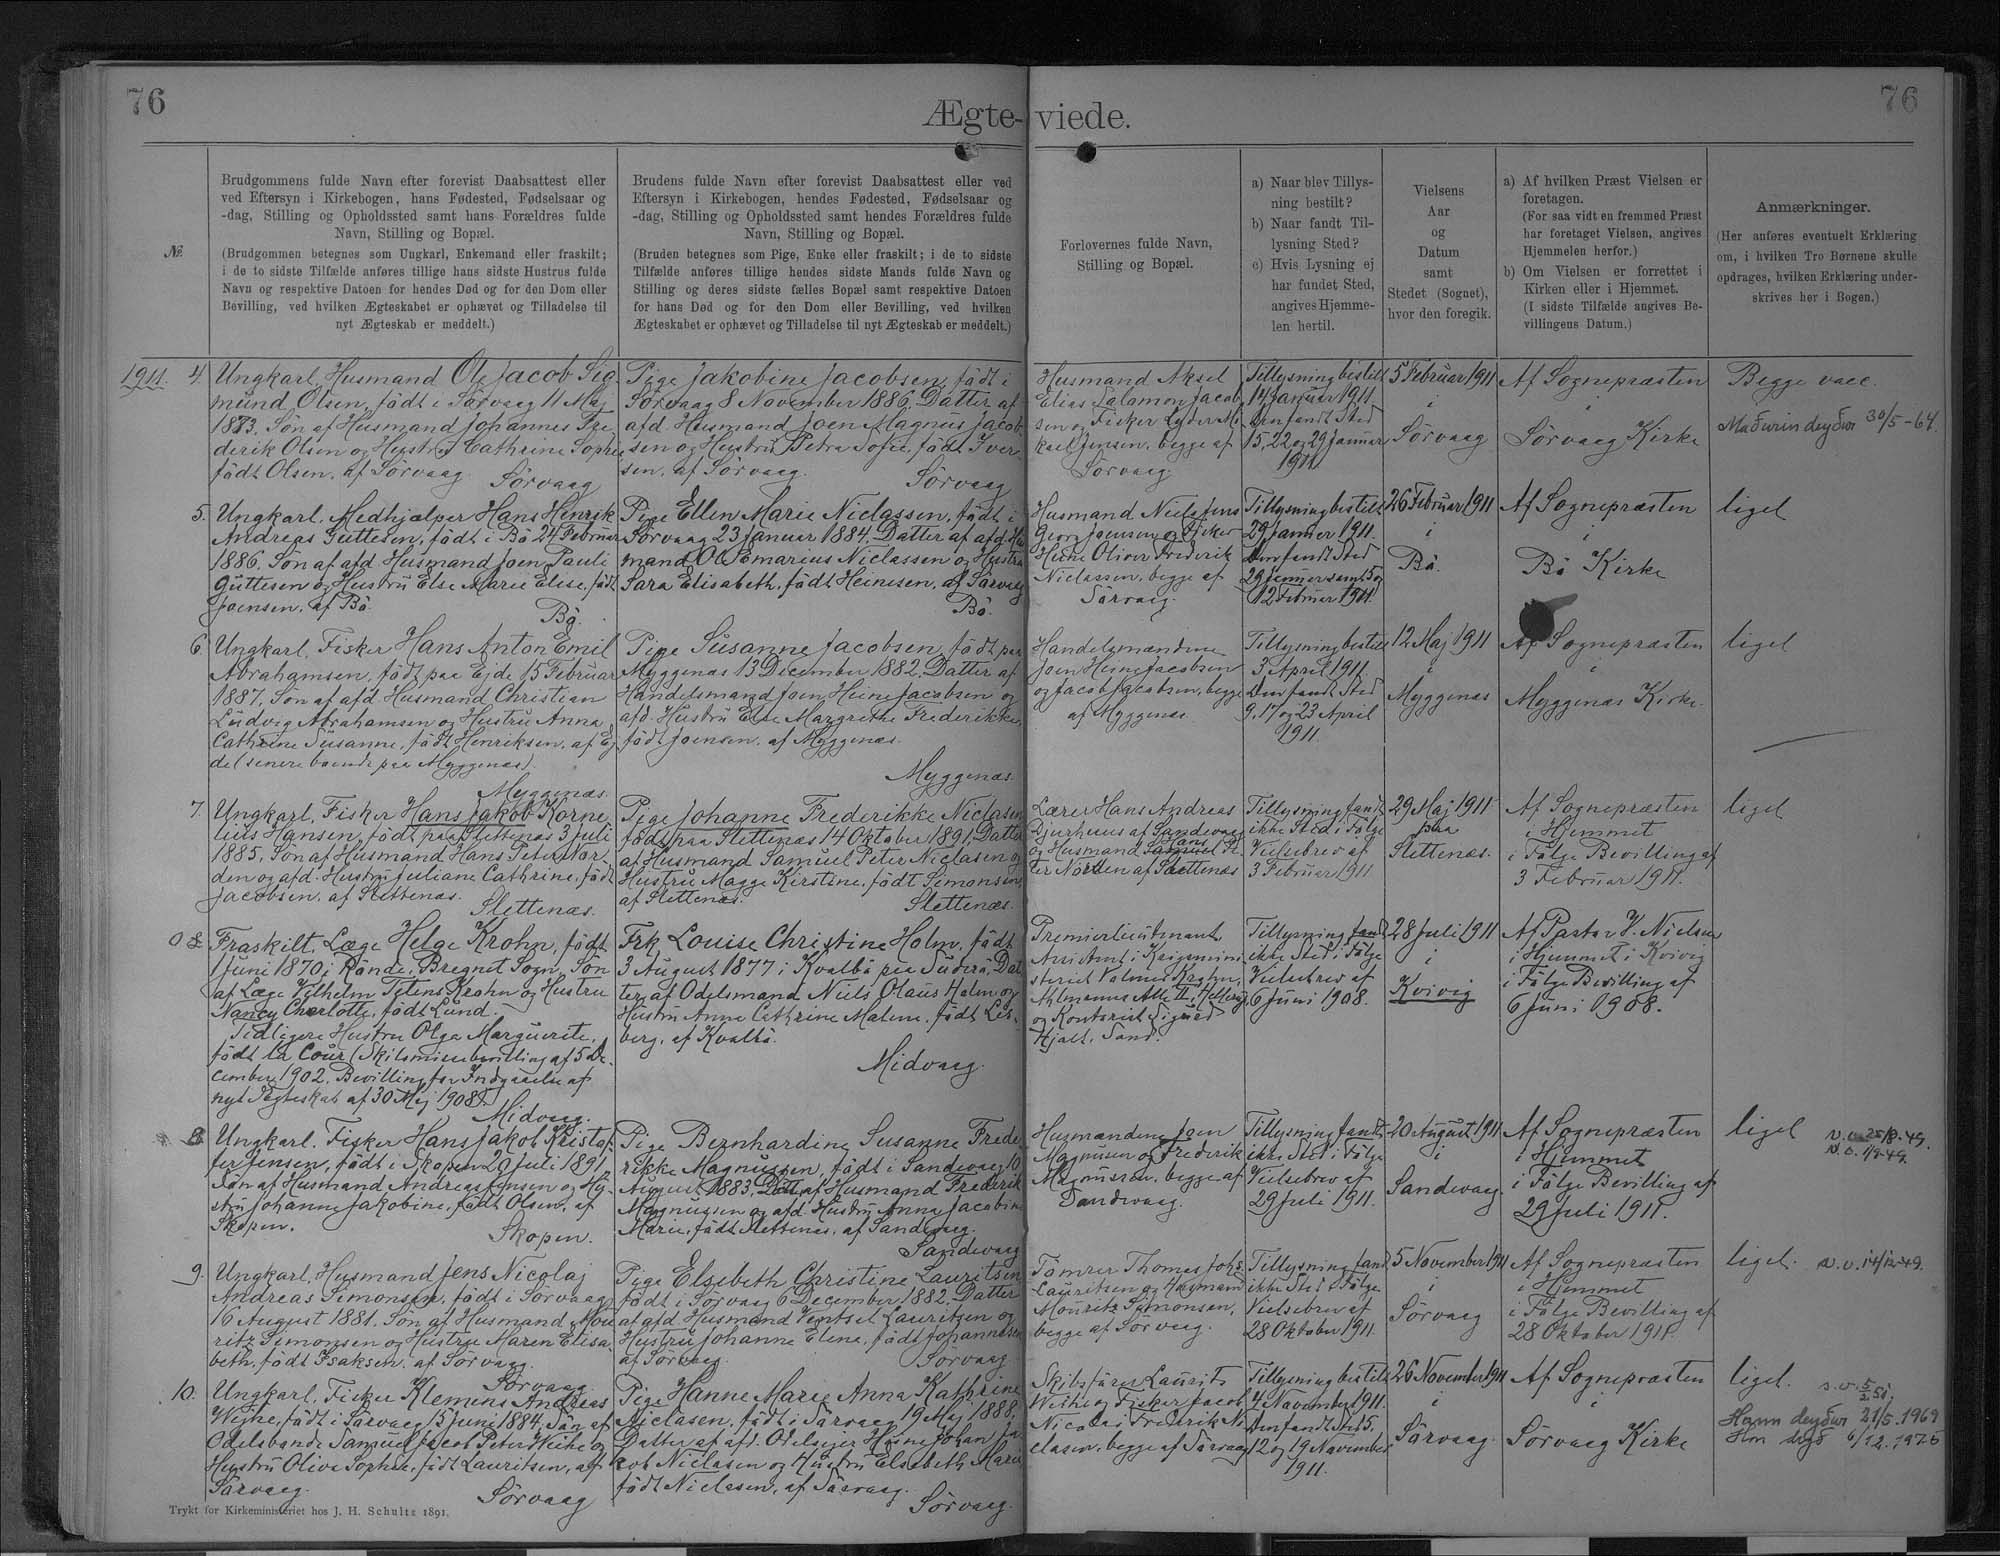 76
Ægte-viede.
76
№
Brudgommens fulde Navn efter forevist Daabsattest eller
ved Eftersyn i Kirkebogen, hans Fødested, Fødselsaar og
-dag, Stilling og Opholdssted samt hans Forældres fulde
Navn, Stilling og Bopæl.
(Brudgommen betegnes som Ungkarl, Enkemand eller fraskilt;
i de to sidste Tilfælde anføres tillige hans sidste Hustrus fulde
Navn og respektive Datoen for hendes Død og for den Dom eller
Bevilling, ved hvilken Ægteskabet er ophævet og Tilladelse til
nyt Ægteskab er meddelt.)
Brudens fulde Navn efter forevist Daabsattest eller ved
Eftersyn i Kirkebogen, hendes Fødested, Fødselsaar og
-dag, Stilling og Opholdssted samt hendes Forældres fulde
Navn, Stilling og Bopæl.
(Bruden betegnes som Pige, Enke eller fraskilt; i de to sidste
Tilfælde anføres tillige hendes sidste Mands fulde Navn og
Stilling og deres sidste fælles Bopæl samt respektive Datoen
for hans Død og for den Dom eller Bevilling, ved hvilken
Ægteskabet er ophævet og Tilladelse til nyt Ægteskab er meddelt.)
Forlovernes fulde Navn,
Stilling og Bopæl.
a) Naar blev Tillys-
ning bestilt?
b) Naar fandt Til-
lysning Sted?
c) Hvis Lysning ej
har fundet Sted,
angives Hjemme-
len hertil.
Vielsens
Aar
og
Datum
samt
Stedet (Sognet),
hvor den foregik.
a) Af hvilken Præst Vielsen er
foretagen.
(For saa vidt en fremmed Præst
har foretaget Vielsen, angives
Hjemmelen herfor.)
b) Om Vielsen er forrettet i
Kirken eller i Hjemmet.
(I sidste Tilfælde angives Be-
villingens Datum.)
Anmærkninger.
(Her anføres eventuelt Erklæring
om, i hvilken Tro Børnene skulle
opdrages, hvilken Erklæring under-
skrives her i Bogen.)
1911. 4.
Ungkarl, Husmand Ole Jacob Sig-
mund Olsen, födt i Sörvaag 11 Maj
1883. Sön af Husmand Johannes Fre
derik Olsen og Hustru Cathrine Sophie
födt Olsen, af Sörvaag
Sörvaag
Pige Jakobine Jacobsen, födt i
Sörvaag 8 November 1886. Datter af
afd. Husmand Joen Magnus Jacob-
sen og Hustru Petra Sofie, födt Iver-
sen, af Sörvaag.
Sörvaag
Husmand Aksel
Elias Salomon Jacob
sen og Fisker
Jensen, begge af
Sörvaag.
Tillysning bestilt
14 Januar 1911.
Den fandt Sted
15, 22 og 29 Januar
1911
5 Februar 1911
i
Sörvaag
Af Sognepræsten
i
Sörvaag Kirke
Begge vacc.
Maðurin deyður 30/5-64.
5.
Ungkarl, Medhjælper Hans Henrik
Andreas Guttesen, födt i Bö 24 Februar
1886. Sön af afd Husmand Joen Pauli
Guttesen og Hustru Else Marie Elise, födt
Joensen, af Bö.
Bö.
Pige Ellen Marie Niclassen, födt i
Sörvaag 23 Januar 1884. Datter af afd Hus
mand Ole Comarius Niclassen og Hustru
Sara Elisabeth, födt Heinesen, af Sörvaag
Bö.
Husmand Niels Jens
Georg Joensen og Fisker
Heine Oliver Frederik
Niclassen, begge af
Sörvaag.
Tillysning bestilt
29 Januar 1911.
Den fandt Sted
29 Januar samt 5 og
12 Februar 1911.
26 Februar 1911
i
Bö.
Af Sognepræsten
i
Bö Kirke
ligel
6
Ungkarl, Fisker Hans Anton Emil
Abrahamsen, födt paa Ejde 15 Februar
1887. Sön af afd. Husmand Christian
Ludvig Abrahamsen og Hustru Anna
Cathrine Susanne, födt Henriksen, af Ej
de (senere boende paa Myggenæs).
Myggenæs.
Pige Susanne Jacobsen, födt paa
Myggenæs 13 December 1882. Datter af
Handelsmand Joen Heine Jacobsen og
afd. Hustru Else Margrethe Frederikke,
födt Joensen, af Myggenæs.
Myggenæs.
Handelsmændene
Joen Heine Jacobsen
og Jacob Jacobsen, begge
af Myggenæs
Tillysning bestilt
3 April 1911.
Den fandt Sted
9, 17 og 23 April
1911.
12 Maj 1911
i
Myggenæs
Af Sognepræsten
i
Myggenæs Kirke.
ligel
7.
Ungkarl, Fisker Hans Jakob Korne
lius Hansen, födt paa Slettenæs 3 Juli
1885. Sön af Husmand Hans Peter Nor-
den og afd. Hustru Juliane Cathrine, födt
Jacobsen, af Slettenæs.
Slettenæs.
Pige Johanne Frederikke Niclasen
födt paa Slettenæs 14 Oktober 1891. Datter
af Husmand Samuel Peter Niclasen og
Hustru Magge Kirstine, födt Simonsen
af Slettenæs.
Slettenæs.
Lærer Hans Andreas
Djurhuus af Sandevaag
og Husmand Hans Pe
ter Norden af Slettenæs
Tillysning fandt
ikke Sted i Fölge
Vielsebrev af
3 Februar 1911
29 Maj 1911
paa
Slettenæs.
Af Sognepræsten
i Hjemmet
i Fölge Bevilling af
3 Februar 1911.
ligel
0 8.
Fraskilt, Læge Helge Krohn, födt
1 Juni 1870 i Rönde, Bregnet Sogn, Sön
af Læge Vilhelm Tetens Krohn og Hustru
Nancy Charlotte, födt Lund.
Tidligere Hustru Olga Marguerite,
födt la Cour (Skilsmissebevilling af 5 De
cember 1902. Bevilling for Indgaaelse af
nyt Ægteskab af 30 Maj 1908).
Midvaag.
Frk. Louise Christine Holm, födt
3 August 1877 i Kvalbö paa Suderö, Dat
ter af Odelsmand Niels Olaus Holm og
Hustru Anne Cathrine Malene, födt Lis-
berg, af Kvalbö.
Midvaag.
Premierlieutnant
Assistent i Krigsmini
steriet Valmar Krohn,
Ahlmanns Alle II, Hellerup
og Kontorist Sigurd
Hjalt, Sand.
Tillysning fandt
ikke Sted i Fölge
Vielsebrev af
6 Juni 1908.
28 Juli 1911
i
Kvivig
Af Pastor V. Nielsen
i Hjemmet i Kvivig
i Fölge Bevilling af
6 Juni 1908.
8.
Ungkarl, Fisker Hans Jakob Kristof
fer Jensen, födt i Skopen 20 Juli 1891.
Sön af Husmand Andreas Jensen og Hu-
stru Johanne Jakobine, födt Olsen, af
Skopen.
Skopen.
Pige Bernhardine Susanne Frede
rikke Magnussen, födt i Sandevaag 10
August 1883. Datter af Husmand Frederik
Magnussen og afd. Hustru Anna Jacobine
Marie, födt Slettenæs, af Sandevaag.
Sandevaag
Husmændene Joen
Magnusen og Frederik
Magnussen, begge af
Sandevaag.
Tillysning fandt
ikke Sted i Fölge
Vielsebrev af
29 Juli 1911.
20 August 1911
i
Sandevaag.
Af Sognepræsten
i Hjemmet
i Fölge Bevilling af
29 Juli 1911.
ligel
v.v. 25/8-49.
v.v. 1/9-49.
9.
Ungkarl, Husmand Jens Nicolaj
Andreas Simonsen, födt i Sörvaag
16 August 1881. Sön af Husmand Mou
ritz Simonsen og Hustru Maren Elisa-
beth, födt Isaksen, af Sörvaag.
Sörvaag
Pige Elsebeth Christine Lauritsen
födt i Sörvaag 6 December 1882. Datter
af afd Husmand Ventsel Lauritsen og
Hustru Johanne Elene, födt Johannesen
af Sörvaag.
Sörvaag
Tömrer Thomas Johs
Lauritsen og Husmand
Mouritz Simonsen,
begge af Sörvaag.
Tillysning fandt
ikke Sted i Fölge
Vielsebrev af
28 Oktober 1911.
5 November 1911
i
Sörvaag
Af Sognepræsten
i Hjemmet
i Fölge Bevilling af
28 Oktober 1911.
ligel.
v.v. 14/12-49.
10.
Ungkarl, Fisker Klemens Andreas
Weihe, födt i Sörvaag 15 Juni 1884. Sön af
Odelsbonde Samuel Jacob Peter Weihe og
Hustru Oliva Sophie, födt Lauritsen, af
Sörvaag.
Sörvaag
Pige Hanne Marie Anna Kathrine
Niclasen, födt i Sörvaag 19 Maj 1888,
Datter af afd. Odelsejer Heine Johan Ja
kob Niclasen og Hustru Elsebeth Marie
födt Niclasen, af Sörvaag.
Sörvaag.
Skibsförer Laurits
Weihe og Fisker Jacob
Nicolai Frederik Ni
clasen, begge af Sörvaag
Tillysning bestilt
4 November 1911.
Den fandt Sted 5.
12 og 19 November
1911.
26 November 1911
i
Sörvaag
Af Sognepræsten
i
Sörvaag Kirke
ligel.
v.v. 5/2 51.
Hann deyður 21/5.1969
Hon deyð 6/12.1976
Trykt for Kirkeministeriet hos J. H. Schultz 1891.